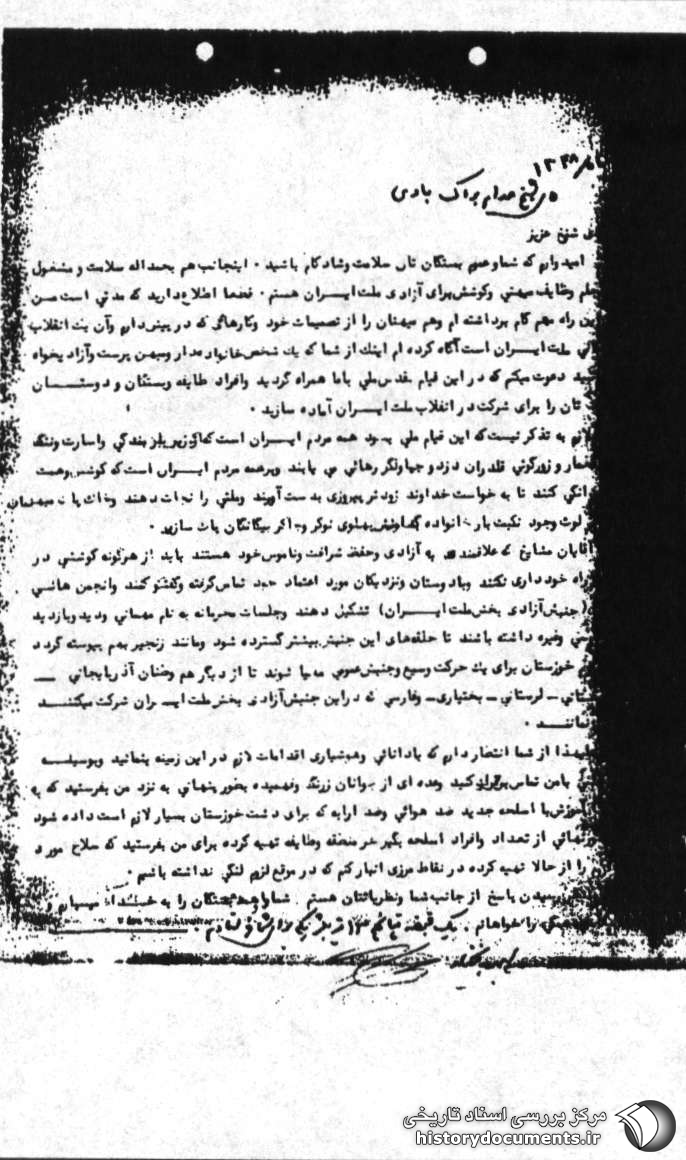 ۱۳۴۸
شیخ عزیز
امیدوارم که شما و عموم بستگان تان سلامت و شادکام باشید . اینجانب هم بحمداله سلامت و مشغول
وظایف میهنی و کوشش برای آزادی ملت ایـــران هستم . قطعا اطلاع دارید که مدتی است من
این راه مهم گام برداشته ام و هم میهنان را از تصمیمات خود و کارهائی که در پیش دارم و آن یک انقلاب
ملت ایـــران است آگاه کرده ام اینک از شما که یك شخص خانواده دار و میهن پرست و آزادیخواه
دعوت میکنم که در این قیام مقدس ملی با ما همراه گردید و افراد طایفه و بستگان و دوستـــان
تان را برای شرکت در انقلاب ملت ایـــران آماده سازید .
لازم به تذکر نیست که این قیام ملی بسود همه مردم ایـــران است که از زیر بندگی و اسارت و ننگ
و زورگوئی قلدران دزد و چپاولگر رهائی می یابند و برهمه مردم ایران است که کوشش و همت
کنند تا به خواست خداوند زودتر پیروزی بدست آورند و ملتی را نجات دهند و خاك پاك میهنمان
لوث وجود نکبت بار خانواده پهلوی نوکر و چاکر بیگانگان پاك سازند .
آقایان مشایخ که علاقمند به آزادی و حفظ شرافت و ناموس خود هستند باید از هرگونه کوششی در
راه خودداری نکنند و با دوستان و نزدیکان مورد اعتماد خود تماس گرفته و گفتگو کنند و انجمن هائی
(جنبش آزادی بخش ملت ایـــران) تشکیل دهند و جلسات محرمانه به نام مهمانی و دید و بازدید
و غیره داشته باشند تا حلقه‌های این جنبش بیشتر گسترده شود و مانند زنجیر بهم پیوسته گردد
خوزستان برای یك حرکت وسیع و جنبش عمومی مهیا شوند تا از دیگر هم وطنان آذربایجانی ــ
ــ لرستانی ــ بختیاری ــ و فارسی که در این جنبش آزادی بخش ملت ایـــران شرکت میکننـــد
نماننـــد .
لهذا از شما انتظار دارم که با دانائی و هوشیاری اقدامات لازم در این زمینه بنمائید و بوسیلـــه
با من تماس برقرار کنید و عده ای از جوانان زرنگ و فهمیده بطور پنهانی به نزد من بفرستید که به
آموزش با اسلحه جدید ضد هوائی و ضد ارابه که برای دشت خوزستان بسیار لازم است داده شود
از تعداد و افراد اسلحه بگیر هر منطقه و طایفه تهیه کرده برای من بفرستید که سلاح مورد
را از حالا تهیه کرده در نقاط مرزی انبار کنم که در موقع لزوم لنگی نداشته باشیم .
رسیدن پاسخ از جانب شما و نظریاتتان هستم . شما و همه بستگان را به خـــدا میسپارم و
را خواهانم . یک قبضه
مرکز بررسی اسناد تاریخی
historydocuments.ir